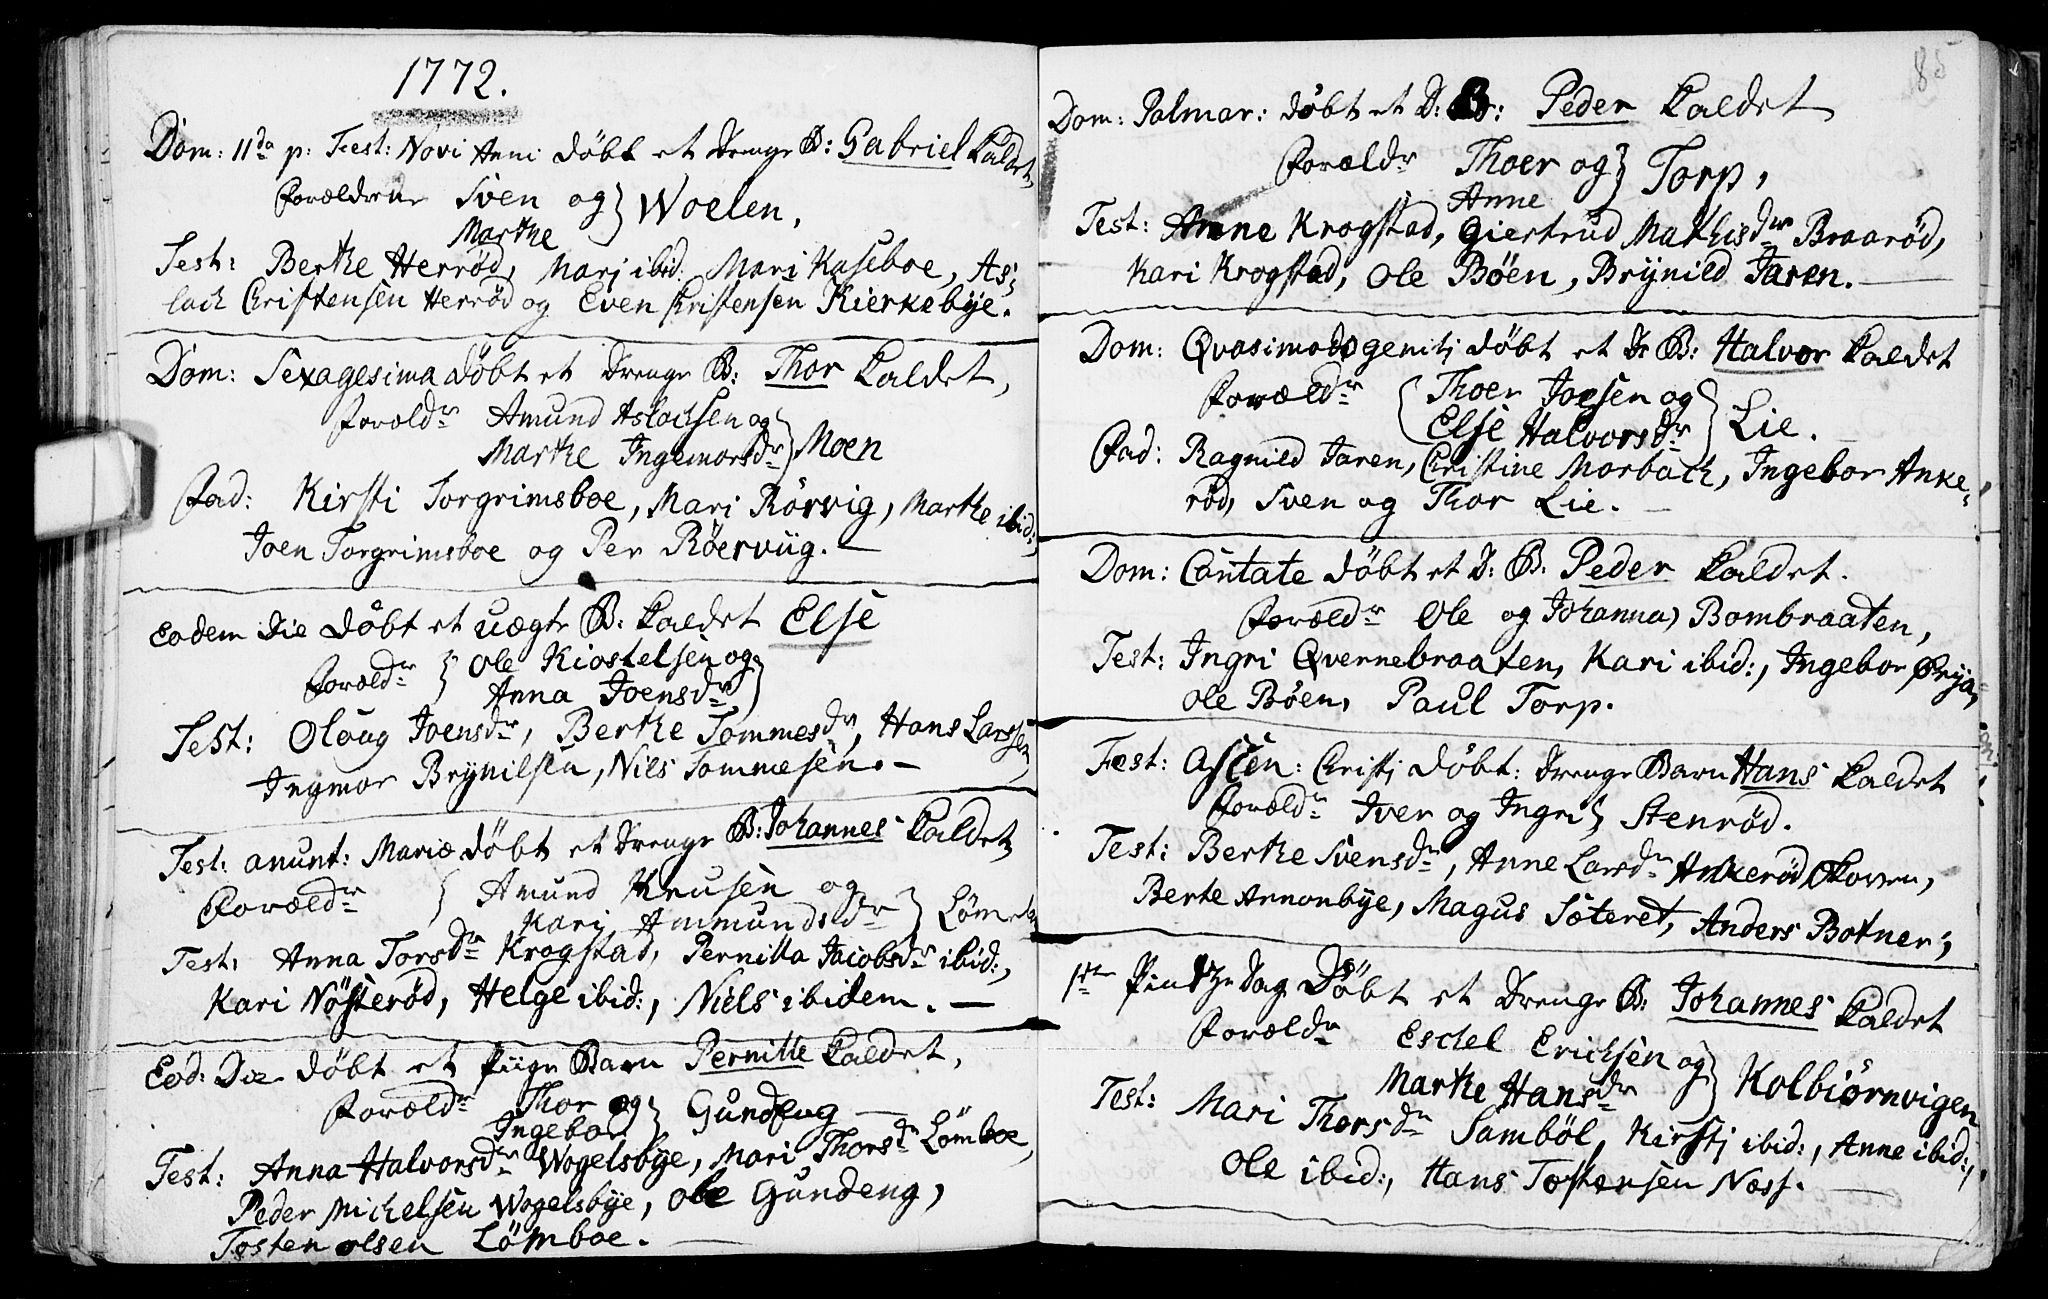 1772.
Dom: 11da p: Fest: Novi Anni döbt et Drenge B: Gabriel kaldet,
Forældrene Sven og } Woelen,
Marthe
Test: Berthe Herröd, Marj ibid. Mari Kaseboe, As-
lach Christensen Herröd og Even Christensen Kierkebÿe.
Dom: Sexagesima döbt et Drenge B: Thor kaldet,
Forældr Amund Aslachsen og
Marthe Ingemorsdr } Moen
Fad: Kirsti Torgrimsboe, Mari Rörvig, Marthe ibid:,
Joen Torgrimsboe og Per Röerviig. —
Eodem Die döbt et uægte B: kaldet Else
Forældr } Ole Kiostelsen og
Anna Joensdr }
Test: Oloug Joensdr, Berthe Tommesdr, Hans Larssen,
Ingmor Brÿnilsen, Niels Tommesen. —
Fest: anunt: Mariæ döbt et Drenge B: Johannes kaldet
Forældr } Amund Knusen og
Kari Ammundsdr }
Test: Anna Torsdr Krogstad, Pernilla Jacobsdr ibid:,
Kari Nösteröd, Helge ibid:, Niels ibidem. —
Eod: Die döbt et Piige Barn Pernille kaldet,
Forældr Thor og } Gundeng —
Ingebor
Test: Anna Halvorsdr Wogelsbÿe, Mari Thorsdr Lömboe,
Peder Michelsen Wogelsbÿe, Ole Gundeng,
Tosten Olsen Lömboe. —
85
Dom: Palmar: döbt et D: B: Peder kaldet
Forældr Thoer og } Torp,
Anne
Test: Anne Krogstad, Giertrud Mathisdr Braaröd,
Kari Krogstad, Ole Böen, Brÿnild Jaren. —
Dom: Qvasimodogenitj döbt et Dr B: Halvor kaldet
Forældr { Thoer Joesen og
Else Halvorsdr } Lie.
Fad: Ragnild Jaren, Christine Morbach, Ingebor Anke-
röd, Sven og Thor Lie. —
Dom: Cantate döbt et D: B. Peder kaldet.
Forældr Ole og Johanna) Bombraaten,
Test: Ingri Qvernebraaten, Kari ibid:, Ingebor
Ole Böen, Paul Torp.
Fest: Ascen: Christj döbt: Drenge Barn Hans kaldet
Forældr Iver og Ingri } Stenröd.
Test: Berthe Svensdr, Anne Larsdr Ankeröd
Berte Annonbÿe, Magus Sæteret, Anders Botner,
1ste Pintze Dag Döbt et Drenge B: Johannes kaldet
Forældr Eschel Erichsen og
Marthe Hansdr } Kolbiörnvigen
Test: Mari Thorsdr Samböl, Kirstj ibid:, Anne ibid:,
Ole ibid:, Hans Tostensen Næss. —